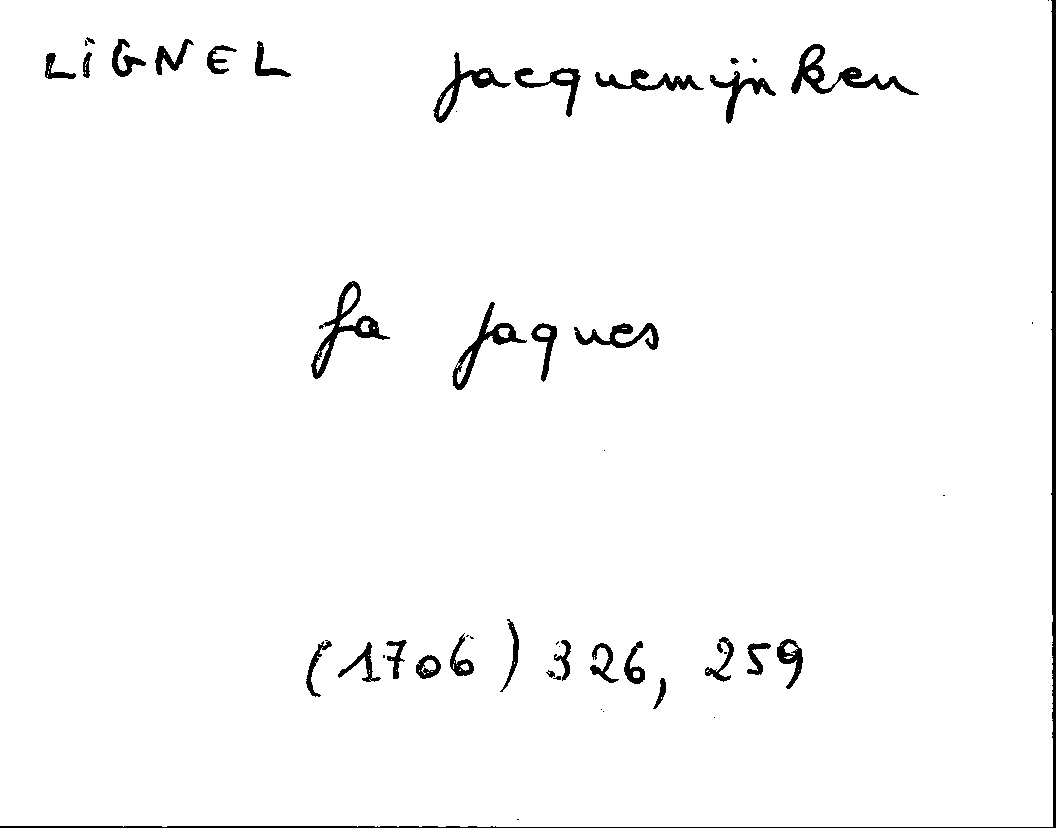 LiGNEL Jacquemijnken
fa Jaques
(1706) 326, 259